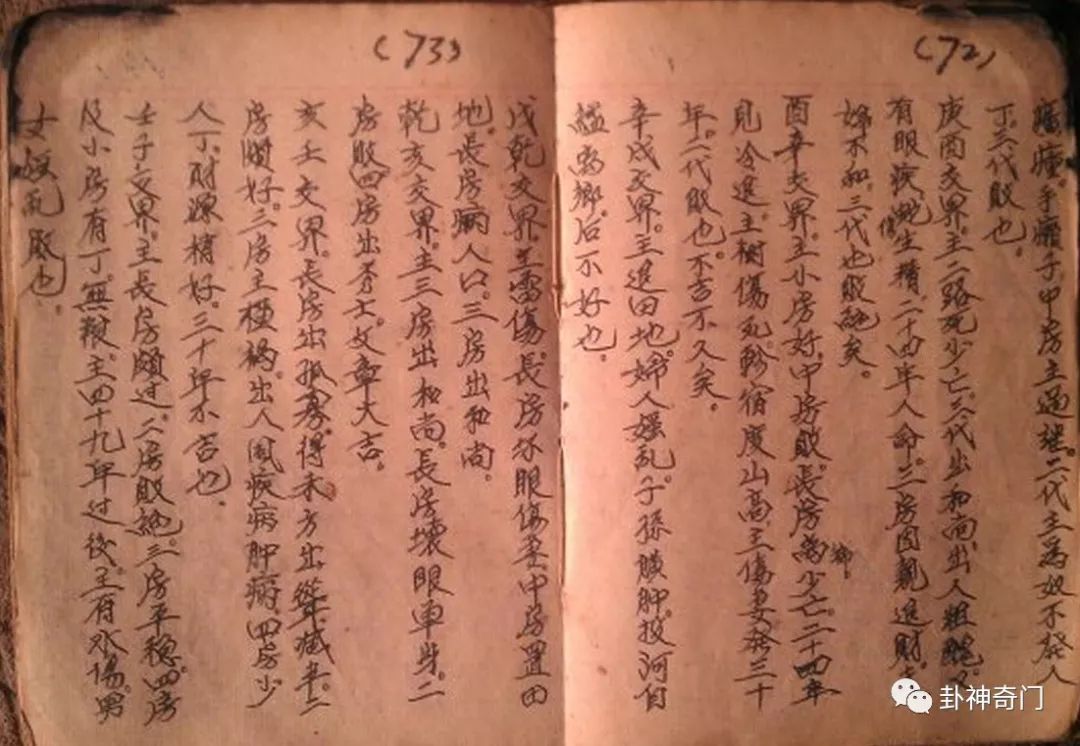 (72)
瘟瘴手癱子中房主過繼。二代主為奴不發人
丁。三代敗也。
庚酉交界。主二路死少亡。三代出和尚。出人粗醜。又
有眼疾。鮑生精。二十四年人命。二房因親進財。夫
婦不和。三代也敗絕矣。
酉辛交界。主小房好。中房敗。長房离鄉。少亡。二十四年
見冷退。主樹傷死。軫宿度山高。主傷妻。發三十
年。二代敗也。不吉不久矣。
辛戌交界。主進田地。婦人媱乱。子孫膨肿。投河自
縊。离鄉。后不好也。
(73)
戌乾交界。主雷傷。長房坏眼傷妻。中房置田
地。長房病人口。三房出和尚。
乾亥交界。主三房出和尚。長房壞眼单身。二
房敗。四房出秀士。文章大吉。
亥壬交界。長房出孤寡。得未方出聳減半。二
房頗好。三房主横禍。出人風疾病肿病。四房少
人丁。財源稍好。三十年不吉也。
壬子交界。主長房頗过。二房敗絕。三房平穩。四房
及小房有丁。無粮。主四十九年过後。主有水傷。男
女媱乱敗也。
卦神奇门